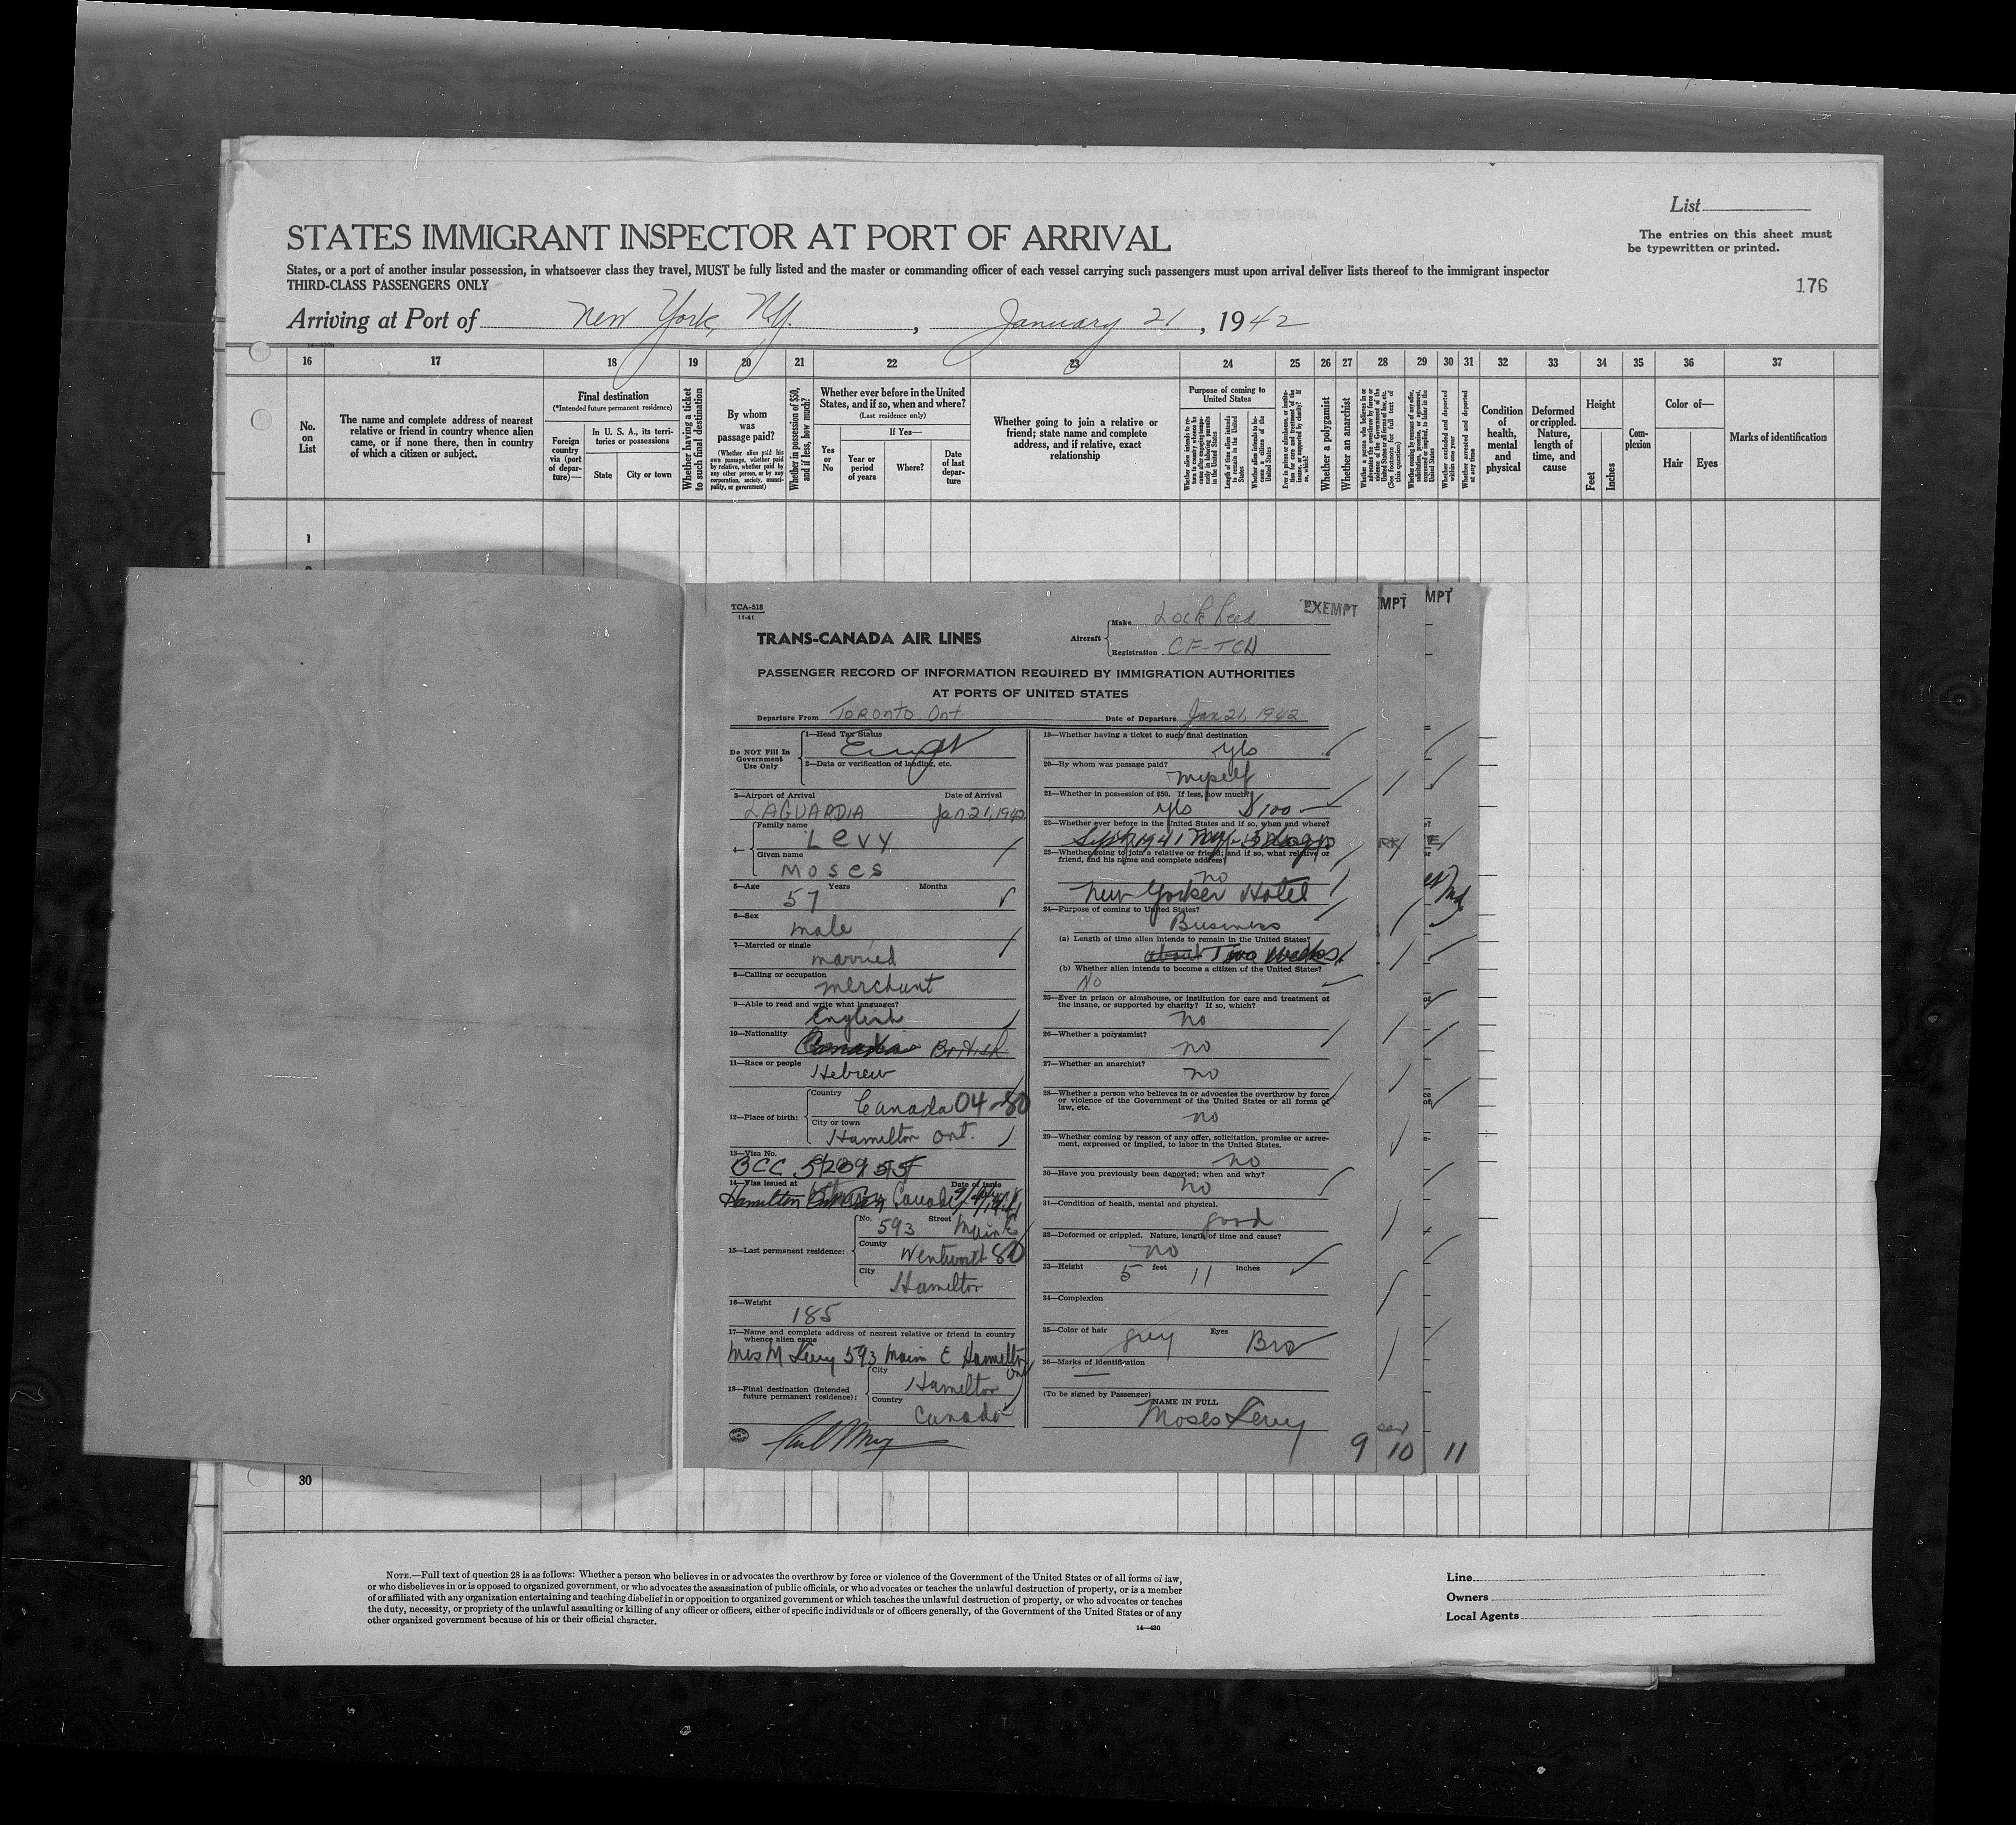 List
The entries on this sheet must
be typewritten or printed.
176
STATES IMMIGRANT INSPECTOR AT PORT OF ARRIVAL
States, or a port of another insular possession, in whatsoever class they travel, MUST be fully listed and the master or commanding officer of each vessel carrying such passengers must upon arrival deliver lists thereof to the immigrant inspector
THIRD-CLASS PASSENGERS ONLY
Arriving at Port of New York, N.Y., January 21, 1942
16 17 18 19 20 21 22 23 24 25 26 27 28 29 30 31 32 33 34 35 36 37
No. on List
The name and complete address of nearest relative or friend in country whence alien came, or if none there, then in country of which a citizen or subject.
Final destination
(*Intended future permanent residence)
Foreign country via (port of departure)—
In U. S. A., its territories or possessions
State
City or town
Whether having a ticket to such final destination
By whom was passage paid?
(Whether alien paid his own passage, whether paid by relative, whether paid by any other person, or by any corporation, society, municipality, or government)
Whether in possession of $50, and if less, how much?
Whether ever before in the United States, and if so, when and where?
(Last residence only)
Yes or No
If Yes—
Year or period of years
Where?
Date of last departure
Whether going to join a relative or friend; state name and complete address, and if relative, exact relationship
Purpose of coming to United States
Length of time alien intends to remain in the United States
Whether alien intends to become a citizen of the United States
Whether a polygamist
Whether an anarchist
Whether arrested and deported at any time
Condition of health, mental and physical
Deformed or crippled. Nature, length of time, and cause
Height
Feet
Inches
Complexion
Color of—
Hair
Eyes
Marks of identification
1
TCA-518
11-41
EXEMPT
MPT
MPT
TRANS-CANADA AIR LINES
Aircraft
Make Lockheed
Registration CF-TCD
PASSENGER RECORD OF INFORMATION REQUIRED BY IMMIGRATION AUTHORITIES
AT PORTS OF UNITED STATES
Departure From Toronto Ont
Date of Departure Jan 21, 1942
Do NOT Fill In Government Use Only
1—Head Tax Status
2—Data or verification of landing, etc.
3—Airport of Arrival Date of Arrival
LAGUARDIA Jan 21, 1942
4— Family name
Levy
Given name
Moses
5—Age Years Months
57
6—Sex
male
7—Married or single
married
8—Calling or occupation
merchant
9—Able to read and write what languages?
English
10—Nationality
Canadian British
11—Race or people
Hebrew
12—Place of birth: Country
Canada 04-80
City or town
Hamilton Ont.
13—Visa No.
BCC
14—Visa issued at Date of issue
Hamilton Canada
15—Last permanent residence:
No. 593 Street Main E
County Wentworth 80
City
Hamilton
16—Weight
185
17—Name and complete address of nearest relative or friend in country
whence alien came
Mrs M Levy 593 Main E Hamilton
Ont
18—Final destination (Intended
future permanent residence):
City
Hamilton
Country
Canada
19—Whether having a ticket to such final destination
yes
20—By whom was passage paid?
myself
21—Whether in possession of $50. If less, how much?
yes $100
22—Whether ever before in the United States and if so, when and where?
23—Whether going to join a relative or friend; and if so, what relative or
friend, and his name and complete address?
no
New Yorker Hotel
24—Purpose of coming to United States?
Business
(a) Length of time alien intends to remain in the United States?
about Two weeks
(b) Whether alien intends to become a citizen of the United States?
No
25—Ever in prison or almshouse, or institution for care and treatment of
the insane, or supported by charity? If so, which?
no
26—Whether a polygamist?
no
27—Whether an anarchist?
no
28—Whether a person who believes in or advocates the overthrow by force
or violence of the Government of the United States or all forms of
law, etc.
no
29—Whether coming by reason of any offer, solicitation, promise or agree-
ment, expressed or implied, to labor in the United States.
no
30—Have you previously been deported; when and why?
no
31—Condition of health, mental and physical.
good
32—Deformed or crippled. Nature, length of time and cause?
no
33—Height 5 feet 11 inches
34—Complexion
35—Color of hair grey Eyes Bro
36—Marks of identification
(To be signed by Passenger)
NAME IN FULL
Moses Levy
9 10 11
30
NOTE.—Full text of question 28 is as follows: Whether a person who believes in or advocates the overthrow by force or violence of the Government of the United States or of all forms of law,
or who disbelieves in or is opposed to organized government, or who advocates the assassination of public officials, or who advocates or teaches the unlawful destruction of property, or is a member
of or affiliated with any organization entertaining and teaching disbelief in or opposition to organized government or which teaches the unlawful destruction of property, or who advocates or teaches
the duty, necessity, or propriety of the unlawful assaulting or killing of any officer or officers, either of specific individuals or of officers generally, of the Government of the United States or of any
other organized government because of his or their official character.
14—430
Line
Owners
Local Agents